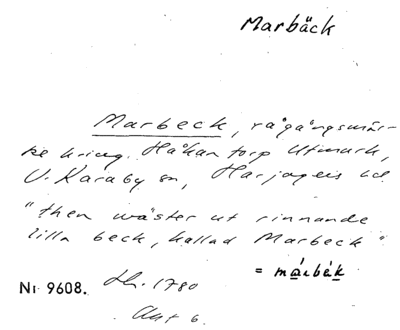 Marbäck
Marbeck, rågångsmär-
ke kring Håkantorp Utmark,
V. Karaby sn, Harjagers hd
"then wäster ut rinnande
lilla beck, kallad Marbeck"
= márbék
Nr 9608. 1780
Akt 6.